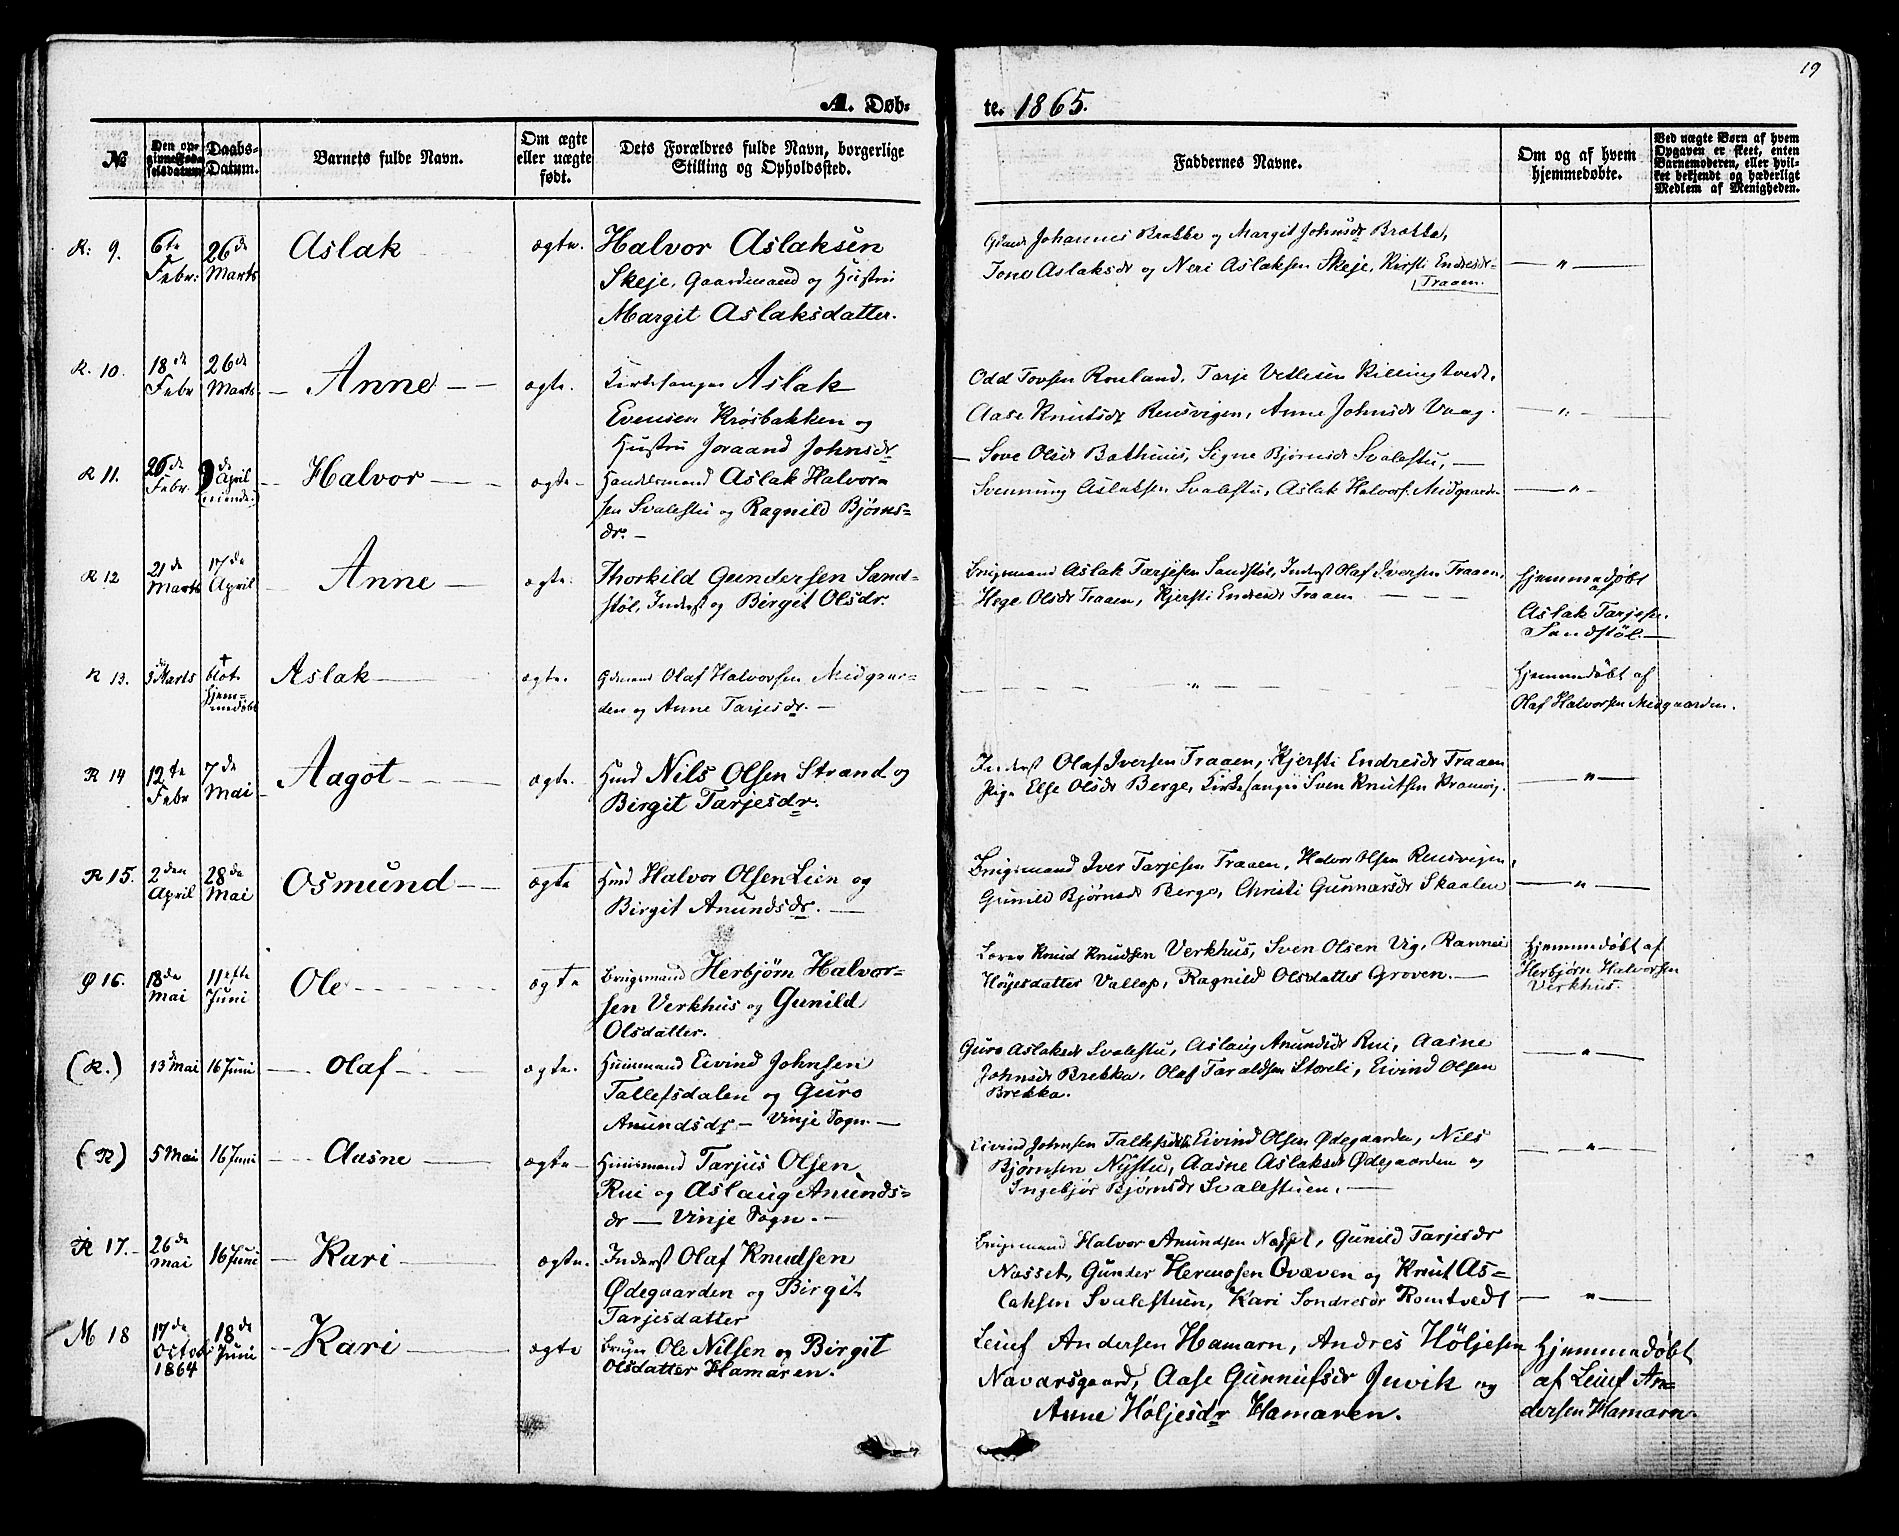 19
A. Døb-
te. 1865.
№
Den op-
givne Fød-
selsdatum
Daabs-
Datum.
Barnets fulde Navn.
Om ægte
eller uægte
født.
Dets Forældres fulde Navn, borgerlige
Stilling og Opholdssted.
Faddernes Navne.
Om og af hvem
hjemmedøbte.
Ved uægte Børn af hvem
Opgaven er skeet, enten
Barnemoderen, eller hvil-
ket bekjendt og hæderligt
Medlem af Menigheden.
R: 9.
6te
Febr:
26de
Marts
Aslak
ægte.
Halvor Aslaksen
Skeje, Gaardmand og Hustru
Margit Aslaksdatter.
Johannes Brække og Margit Johnsdr Brække,
Tone Aslaksdr og Neri Aslaksen Skeje, Kirsti Endresdr
Traaen.
— " —
R. 10.
18de
Febr
26de
Marts.
Anne
ægte.
Kirkesanger Aslak
Evensen Krosbakken og
Hustru Joraand Johnsdr
Odd Tovsen Rouland, Tarje Vetlesen Killingtvedt,
Aase Knutsdr Rensvigen, Anne Johnsdr Vaag.
— " —
R 11.
26de
Febr.
9de
April
(niende)
Halvor
ægte
Handelsmand Aslak Halvor-
sen Svalestu og Ragnild Bjørns-
dr. —
— Sove Olsdr Bathuus, Signe Bjørnsdr Svalestu, —
Svenning Aslaksen Svalestu, Aslak Halvors. Midgaarden
— " —
R 12
21de
Marts
17de
April
Anne
ægte.
Thorkild Gundersen Sand-
støl, Inderst og Birgit Olsdr.
Brugsmand Aslak Tarjesen Sandstøl, Inderst Olaf Iversen Traaen,
Hege Olsdr Traaen, Kjersti Endresdr Traaen
Hjemmedøbt
af
Aslak Tarjesen
Sandstøl. —
R 13.
3die Marts
+
blot
hjem-
medøbt
Aslak
ægte.
Gdmand Olaf Halvorsen Midgaar-
den og Anne Tarjesdr. —
"
Hjemmedøbt af
Olaf Halvorsen Midgaarden.
R 14
12te
Febr
7de
Mai
Aagot
ægte.
Hmd Nils Olsen Strand og
Birgit Tarjesdr.
Inderst Olaf Iversen Traaen, Kjersti Endresdr Traaen
Pige Else Olsdr Berge, Kirkesanger Sven Knutsen Kramvig.
— " —
R 15.
2den
April
28de
Mai
Osmund
ægte
Hmd Halvor Olsen Lien og
Birgit Anundsdr. —
Brugsmand Iver Tarjesen Traaen, Halvor Olsen Rensvigen,
Gunild Bjørnsdr Berge, Christi Gunnarsdr Skaalen
— " —
Ø 16.
18de
Mai
11efte
Juni
Ole
ægte
Brugsmand Herbjørn Halvor-
sen Verkhus og Gunild
Olsdatter.
Lærer Knud Knudsen Verkhus, Sven Olsen Vig, Rannei
Höjesdatter Vallop, Ragnild Olsdatter Groven. —
Hjemmedøbt af
Herbjørn Halvorsen
Verkhus.
(R.)
13 Mai
16 Juni
Olaf
ægte.
Huusmand Eivind Johnsen
Tallefsdalen og Guro
Anundsdr — Vinje Sogn —
Guro Aslaksdr Svalestu, Aslaug Anundsdr Rui, Aasne
Johnsdr Brekka, Olaf Taraldsen Storeli, Eivind Olsen
Brekka.
— " —
(R)
5 Mai
16 Juni
Aasne
ægte
Huusmand Tarjus Olsen
Rui og Aslaug Anunds-
dr — Vinje Sogn. —
Eivind Johnsen Tallefsdal, Eivind Olsen Ødegaarden, Nils
Bjørnsen Nystu, Aasne Aslaksdr Ødegaarden og
Ingebjør Bjørnsdr Svalestuen. —
— " —
R 17.
26de
Mai
16 Juni
Kari
ægte.
Inderst Olaf Knudsen
Ødegaarden og Birgit
Tarjesdatter
Brugsmand Halvor Anundsen Næsset, Gunild Tarjesdr
Næsset, Gunder Hermosen Qvæven og Knut As-
laksen Svalestuen, Kari Sondresdr Romtvedt
— " —
M 18
17de
Octob:
1864
18de
Juni
Kari
ægte
Bruger Ole Nilsen og Birgit
Olsdatter Hamaren.
Leiuf Andersen Hamarn, Andres Höljesen
Navarsgaard, Aase Gunnufsdr Juvik og
Anne Höljesdr Hamaren.
Hjemmedøbt
af Leiuf An-
dersen Hamarn.